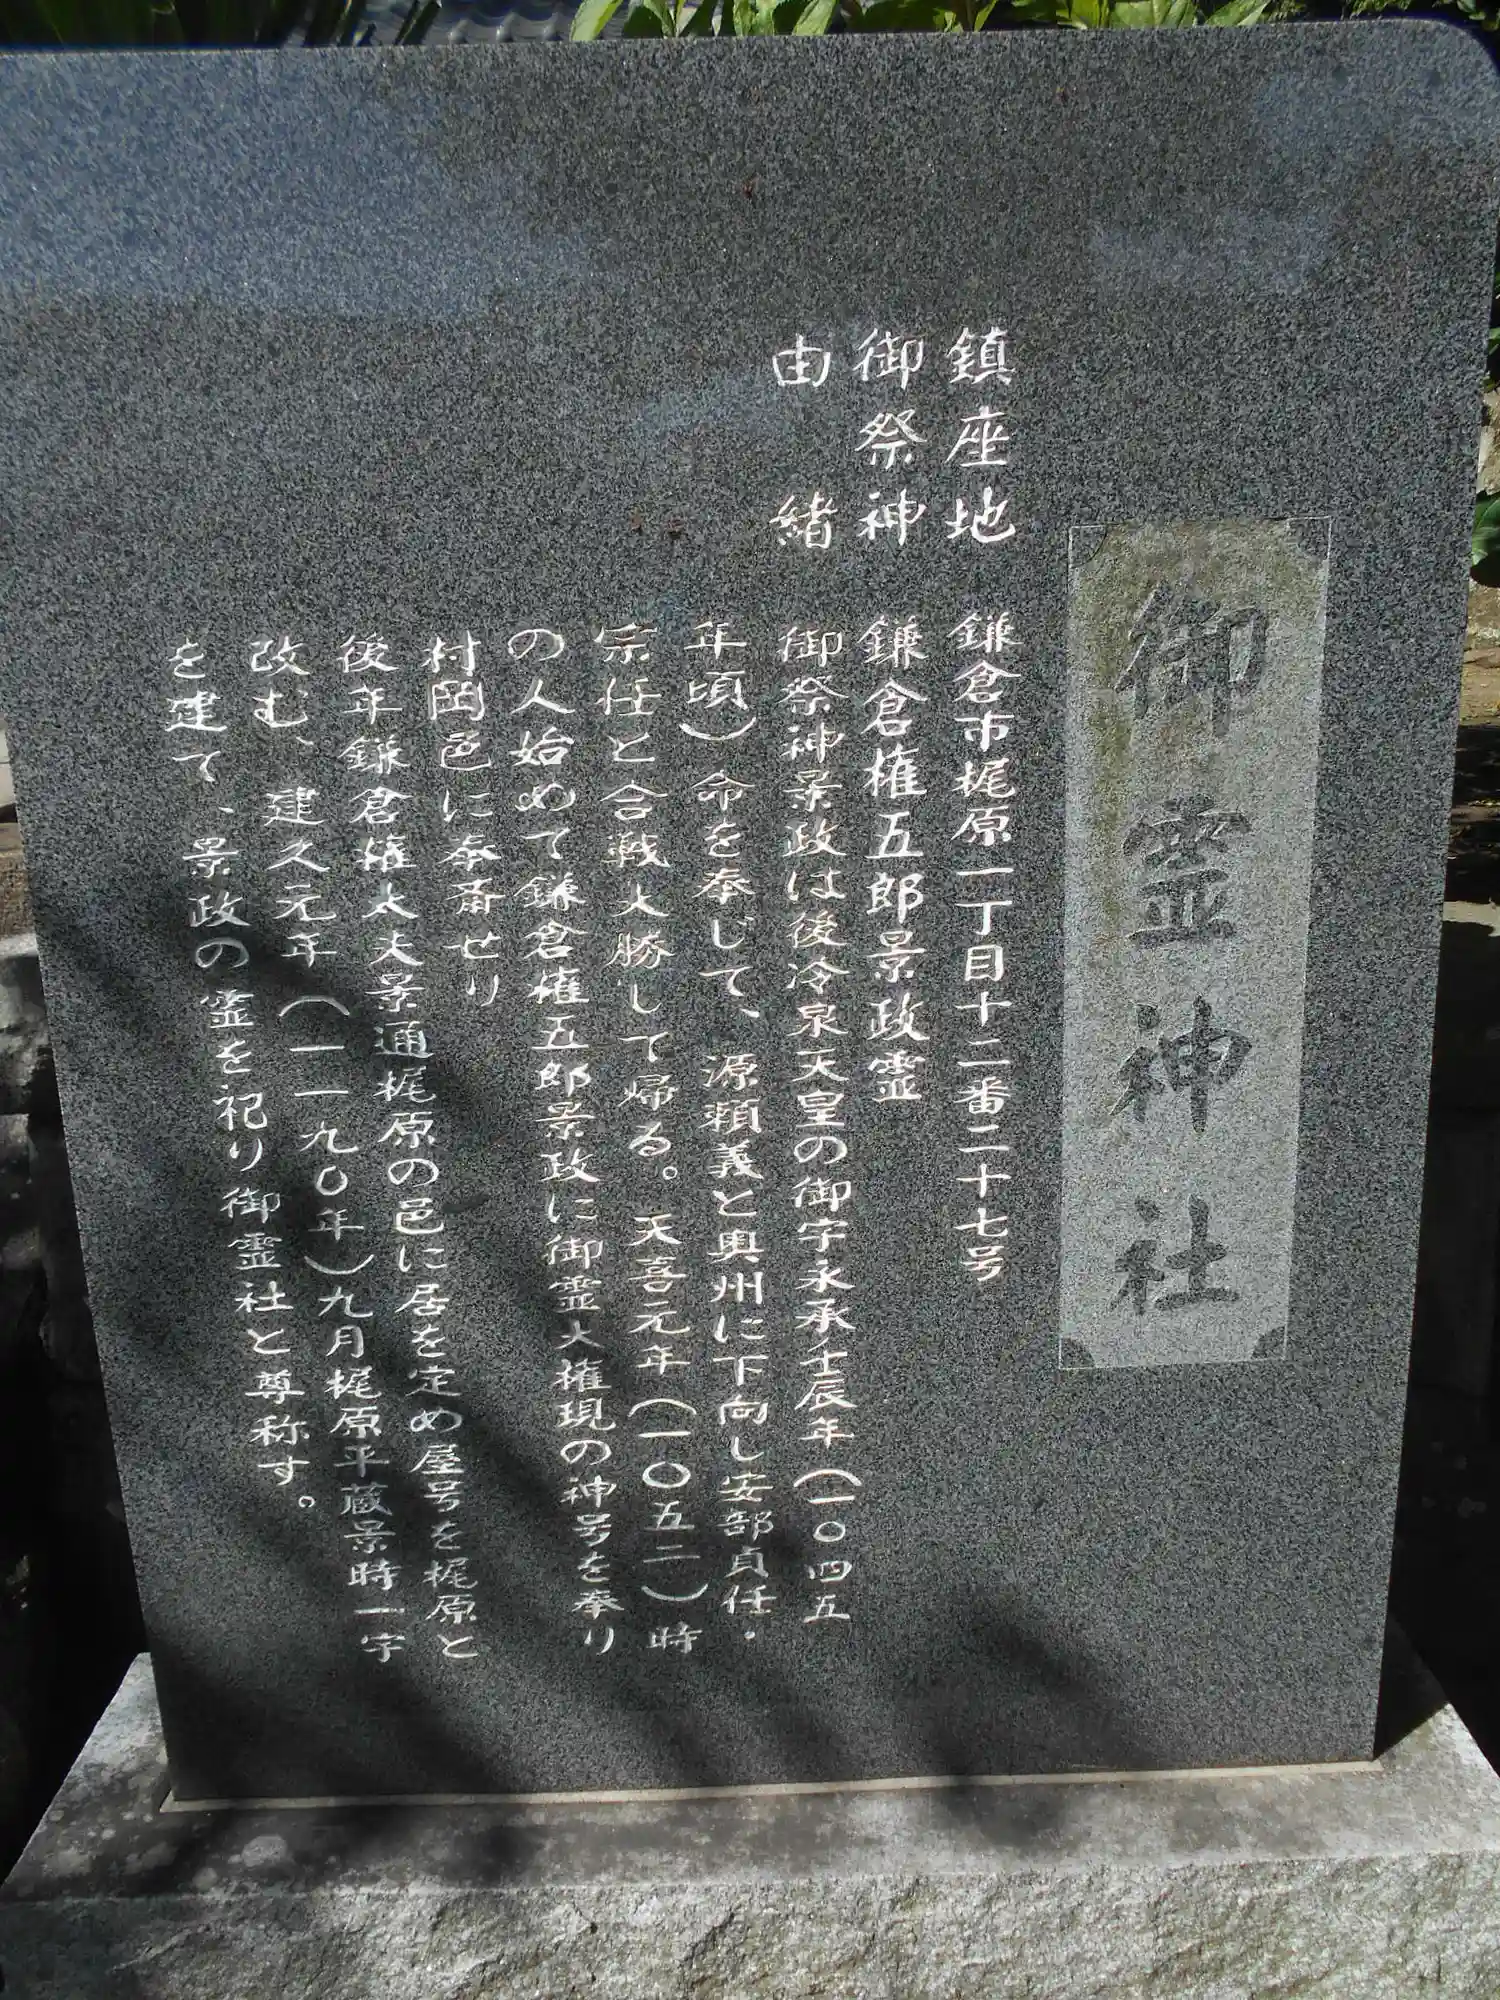 御霊神社
鎮座地 鎌倉市梶原一丁目十二番二十七号
御祭神 鎌倉権五郎景政霊
由緒 御祭神景政は後冷泉天皇の御宇永承壬辰年(一〇四五
年頃)命を奉じて、源頼義と奥州に下向し安部貞任・
宗任と合戦大勝して帰る。天喜元年(一〇五二)時
の人始めて鎌倉権五郎景政に御霊大権現の神号を奉り
村岡邑に奉斎せり
後年鎌倉権太夫景通梶原の邑に居を定め屋号を梶原と
改む、建久元年(一一九〇年)九月梶原平蔵景時一宇
を建て、景政の霊を祀り御霊社と尊称す。